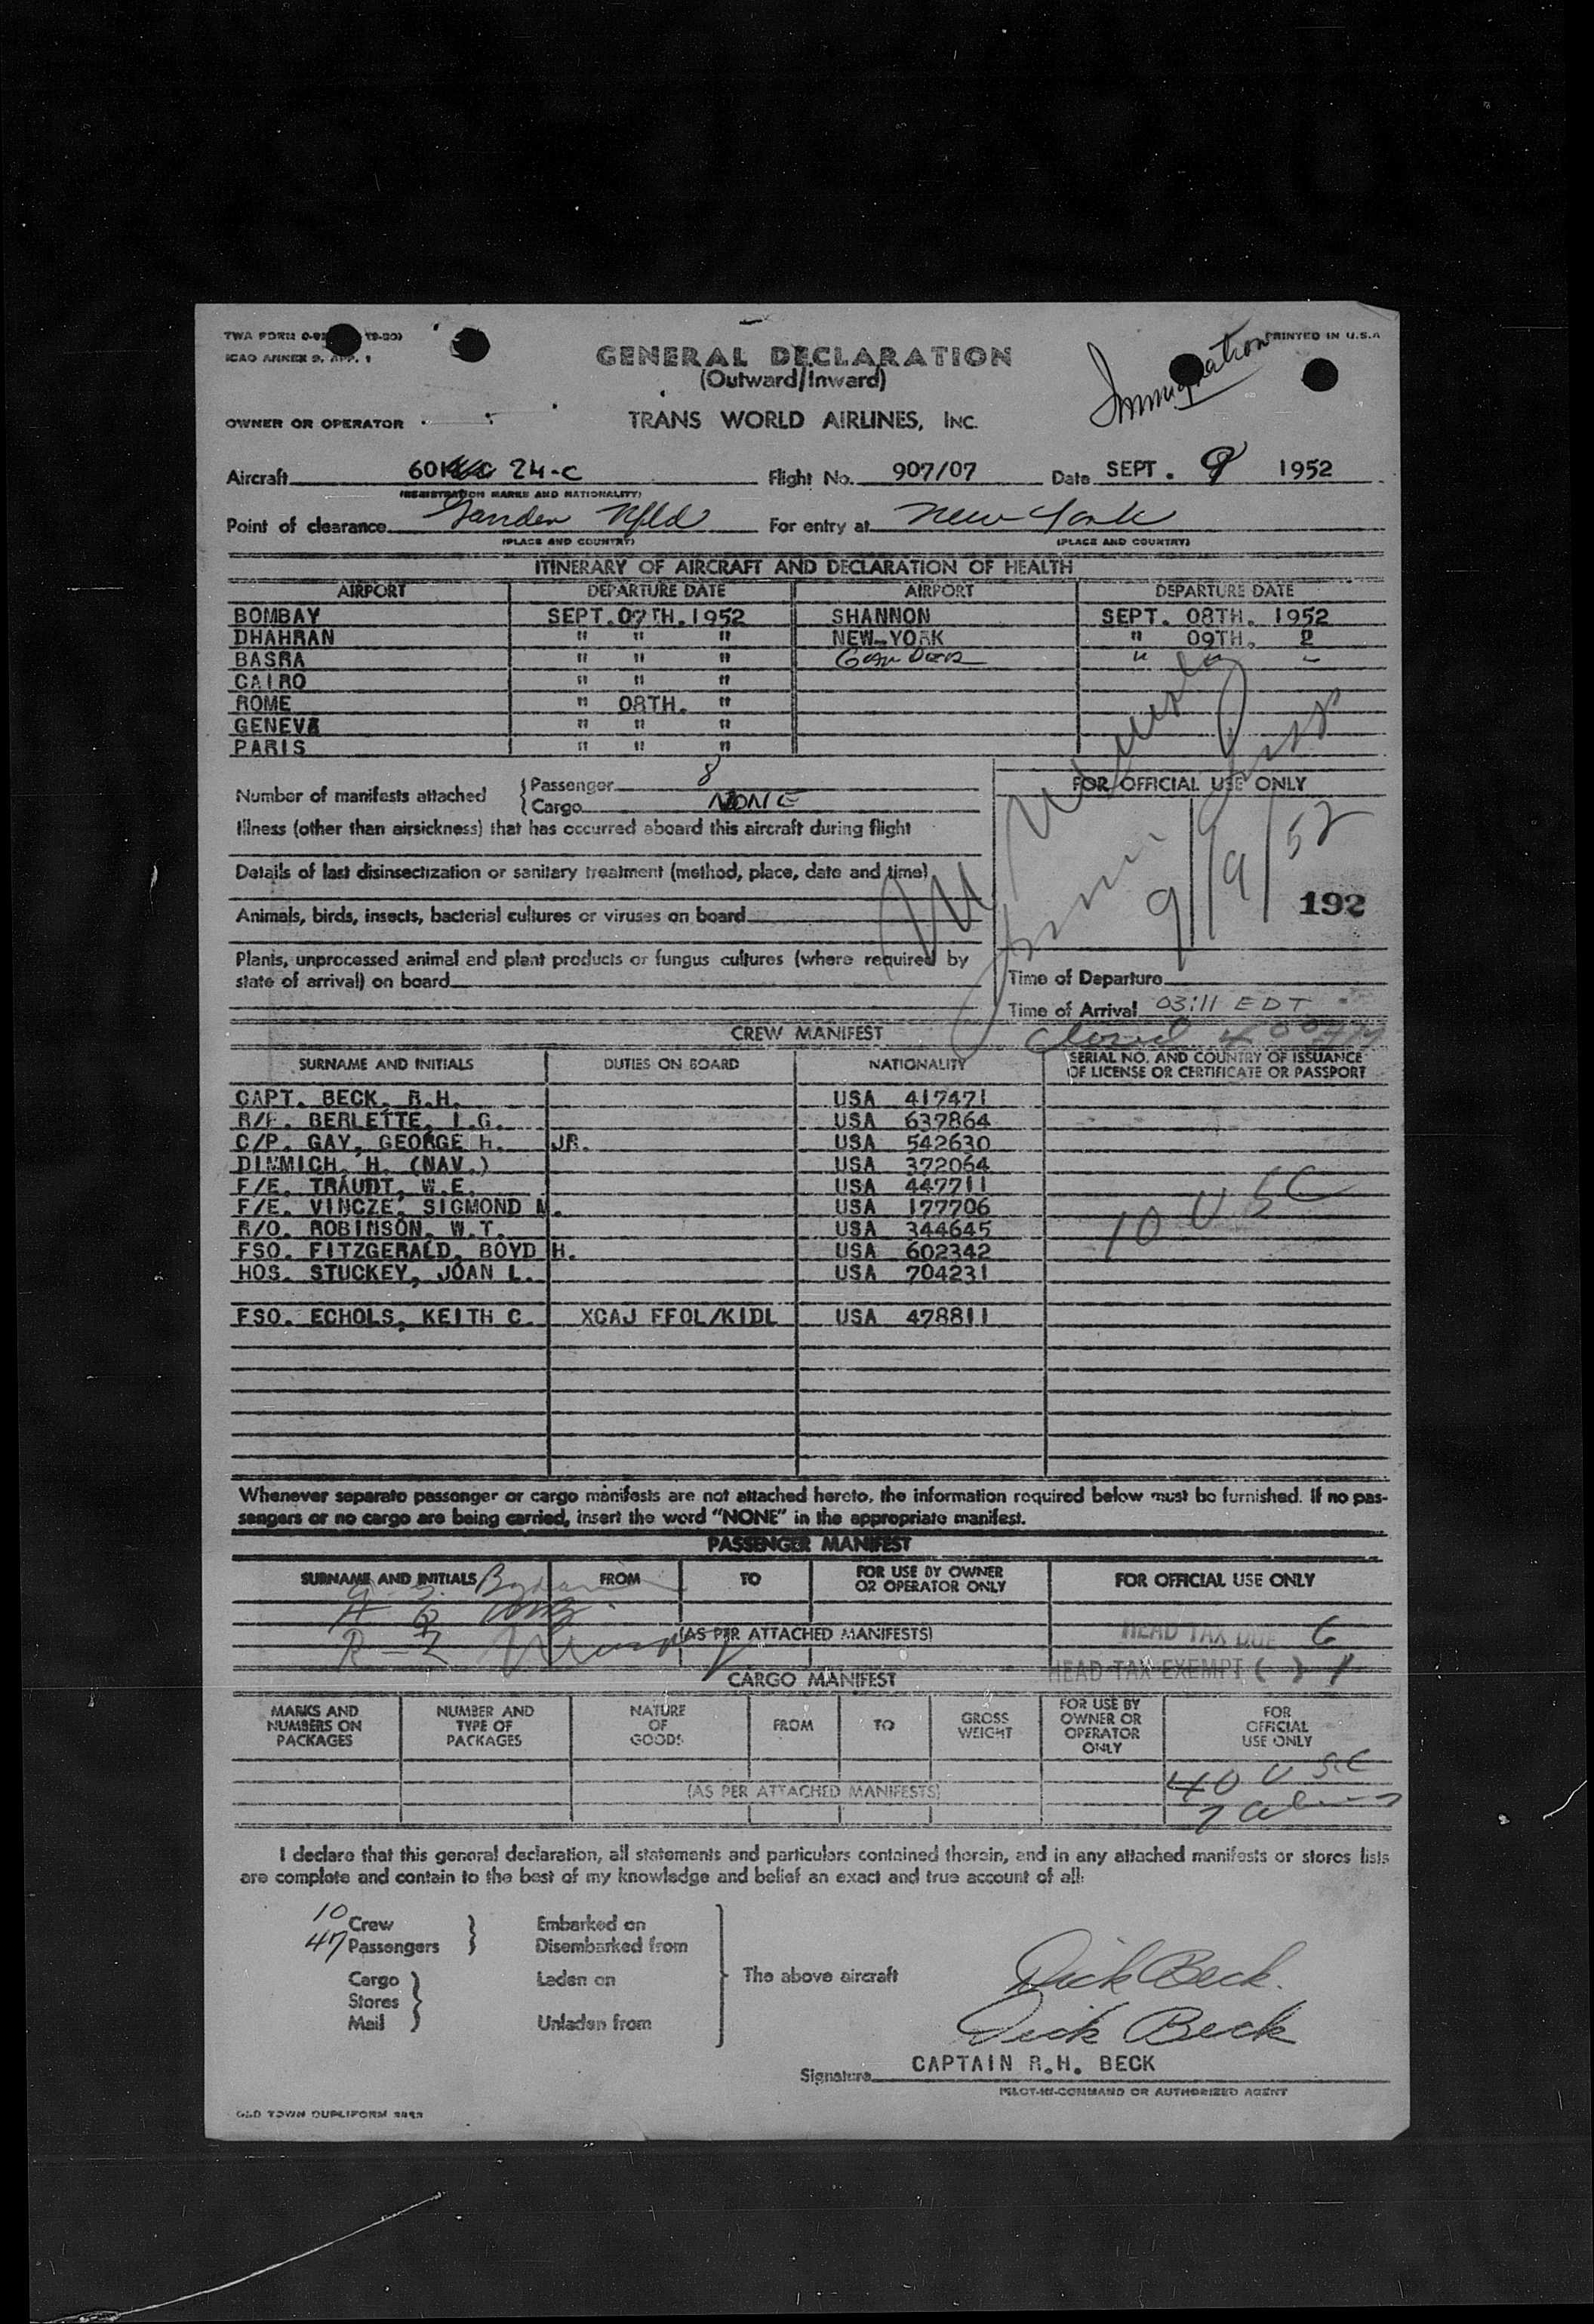 TWA FORM
PRINTED IN U.S.A
ICAO ANNEX 9, APP. 1
GENERAL DECLARATION
(Outward/Inward)
Immigration
OWNER OR OPERATOR
TRANS WORLD AIRLINES, INC.
Aircraft 24-C Flight No. 907/07 Date SEPT. 9 1952
(REGISTRATION MARKS AND NATIONALITY)
Point of clearance Gander Nfld For entry at New York
(PLACE AND COUNTRY) (PLACE AND COUNTRY)
ITINERARY OF AIRCRAFT AND DECLARATION OF HEALTH
AIRPORT DEPARTURE DATE AIRPORT DEPARTURE DATE
BOMBAY SEPT. 07TH. 1952 SHANNON SEPT. 08TH. 1952
DHAHRAN " " " NEW-YORK " 09TH. 2
BASRA " " " Gander " " "
CAIRO " " "
ROME " 08TH. "
GENEVA " " "
PARIS " " "
Number of manifests attached { Passenger 8
{ Cargo NONE
FOR OFFICIAL USE ONLY
Illness (other than airsickness) that has occurred aboard this aircraft during flight
Details of last disinsectization or sanitary treatment (method, place, date and time)
9/9/52
192
Animals, birds, insects, bacterial cultures or viruses on board
Plants, unprocessed animal and plant products or fungus cultures (where required by
state of arrival) on board
Time of Departure
Time of Arrival 03:11 EDT
CREW MANIFEST
SURNAME AND INITIALS DUTIES ON BOARD NATIONALITY SERIAL NO. AND COUNTRY OF ISSUANCE
OF LICENSE OR CERTIFICATE OR PASSPORT
CAPT. BECK, R.H. USA 417471
R/F. BERLETTE, I.G. USA 637864
C/P. GAY, GEORGE H. JR. USA 542630
DIMMICH, H. (NAV.) USA 372064
F/E. TRAUDT, W.E. USA 447711
F/E. VINCZE, SIGMOND M. USA 177706
R/O. ROBINSON, W.T. USA 344645
FSO. FITZGERALD, BOYD H. USA 602342
HOS. STUCKEY, JOAN L. USA 704231
10 USC
FSO. ECHOLS, KEITH C. XCAJ FFOL/KIDL USA 478811
Whenever separate passenger or cargo manifests are not attached hereto, the information required below must be furnished. If no pas-
sengers or no cargo are being carried, insert the word "NONE" in the appropriate manifest.
PASSENGER MANIFEST
SURNAME AND INITIALS FROM TO FOR USE BY OWNER
OR OPERATOR ONLY FOR OFFICIAL USE ONLY
(AS PER ATTACHED MANIFESTS)
HEAD TAX DUE 6
HEAD TAX EXEMPT ( ) 1
CARGO MANIFEST
MARKS AND
NUMBERS ON
PACKAGES
NUMBER AND
TYPE OF
PACKAGES
NATURE
OF
GOODS
FROM
TO
GROSS
WEIGHT
FOR USE BY
OWNER OR
OPERATOR
ONLY
FOR
OFFICIAL
USE ONLY
40 USC
(AS PER ATTACHED MANIFESTS)
I declare that this general declaration, all statements and particulars contained therein, and in any attached manifests or stores lists
are complete and contain to the best of my knowledge and belief an exact and true account of all:
10 Crew } Embarked on
47 Passengers Disembarked from
Cargo } Laden on
Stores
Mail Unladen from
The above aircraft
Dick Beck.
Dick Beck
Signature CAPTAIN R.H. BECK
PILOT-IN-COMMAND OR AUTHORIZED AGENT
OLD TOWN DUPLIFORM